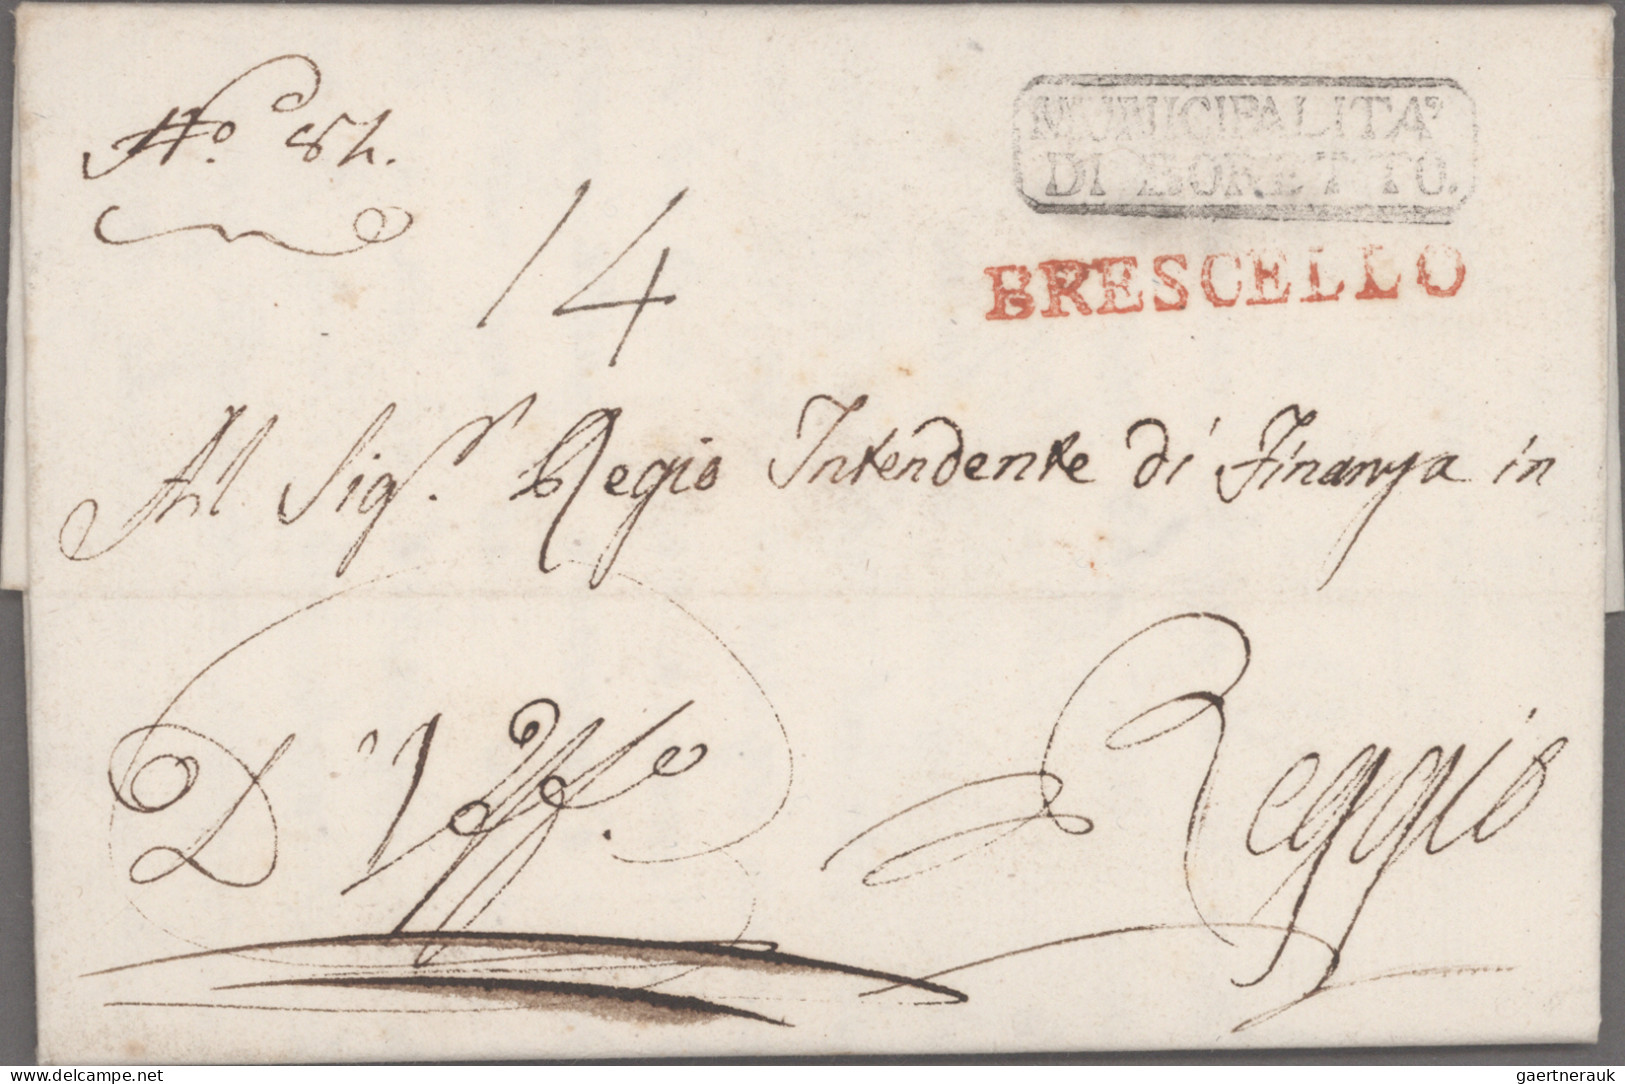 MUNICIPALITA'
DI BORETTO.
BRESCELLO
14
Al Sigr. Regio Intendente di Finanza in
Reggio
D'Uffo.
delcampe.net
gaertnerauk